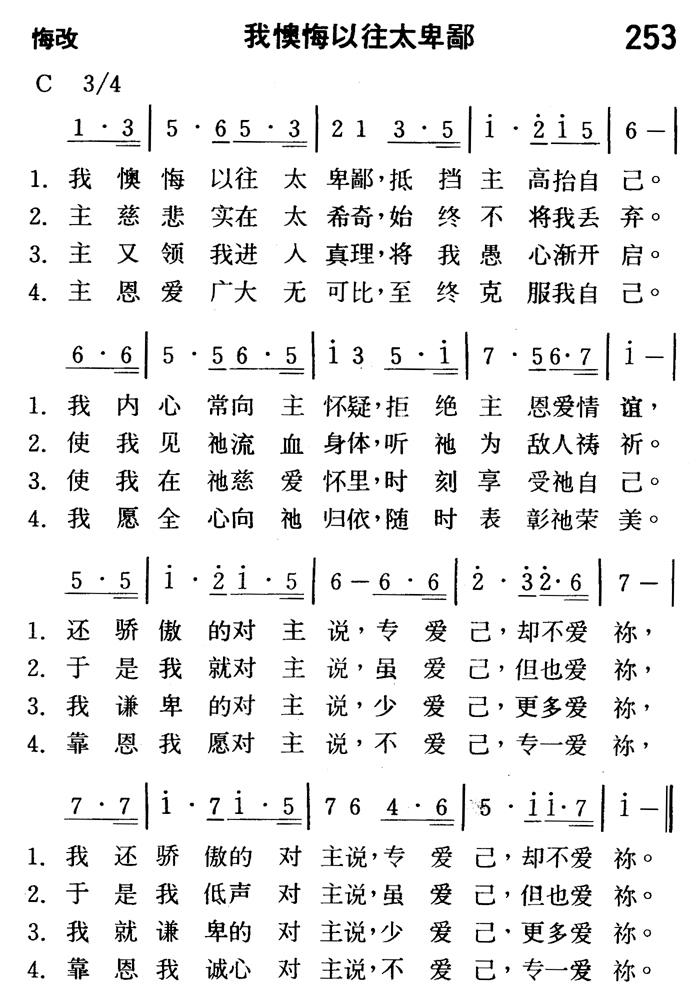 悔改 我懊悔以往太卑鄙 253
C 3/4
1 · 3 | 5 · 6 5 · 3 | 2 1 3 · 5 | i · 2̇ i 5 | 6 — |
1. 我懊悔以往太卑鄙,抵挡主高抬自己。
2. 主慈悲实在太希奇,始终不将我丢弃。
3. 主又领我进入真理,将我愚心渐开启。
4. 主恩爱广大无可比,至终克服我自己。
6 · 6 | 5 · 5 6 · 5 | i 3 5 · i | 7 · 5 6 · 7 | i — |
1. 我内心常向主怀疑,拒绝主恩爱情谊,
2. 使我见祂流血身体,听祂为敌人祷祈。
3. 使我在祂慈爱怀里,时刻享受祂自己。
4. 我愿全心向祂归依,随时表彰祂荣美。
5 · 5 | i · 2̇ i · 5 | 6 — 6 · 6 | 2̇ · 3̇ 2̇ · 6 | 7 — |
1. 还骄傲的对主说,专爱己,却不爱祢,
2. 于是我就对主说,虽爱己,但也爱祢,
3. 我谦卑的对主说,少爱己,更多爱祢,
4. 靠恩我愿对主说,不爱己,专一爱祢,
7 · 7 | i · 7 i · 5 | 7 6 4 · 6 | 5 · i i · 7 | i — ‖
1. 我还骄傲的对主说,专爱己,却不爱祢。
2. 于是我低声对主说,虽爱己,但也爱祢。
3. 我就谦卑的对主说,少爱己·更多爱祢。
4. 靠恩我诚心对主说,不爱己,专一爱祢。